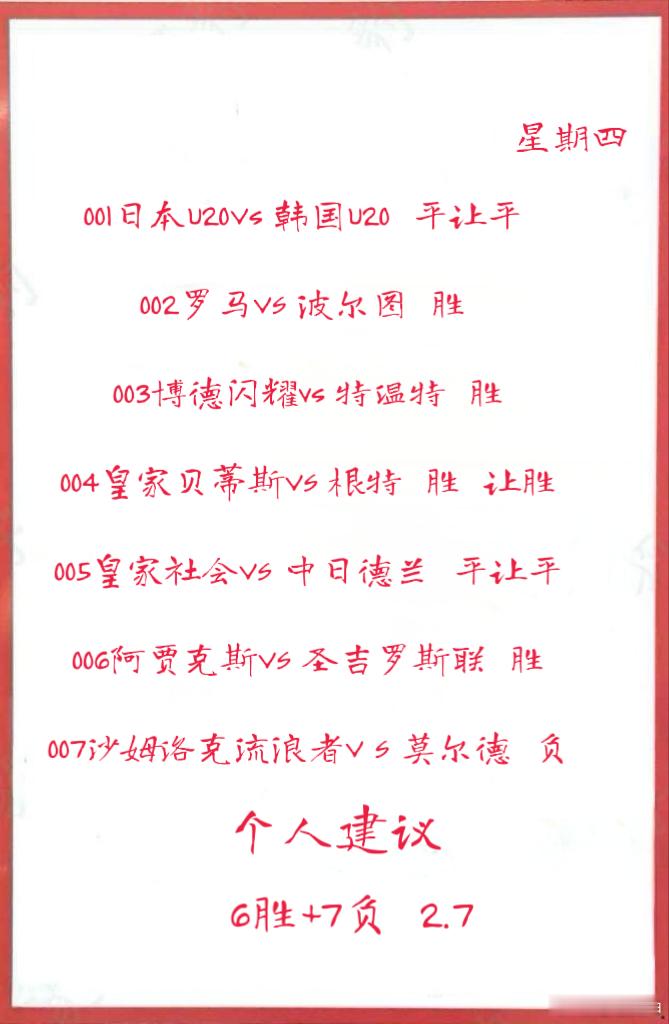 星期四
001日本U20vs 韩国U20 平让平
002罗马vs 波尔图 胜
003博德闪耀vs 特温特 胜
004皇家贝蒂斯vs 根特 胜 让胜
005皇家社会vs 中日德兰 平让平
006阿贾克斯vs 圣吉罗斯联 胜
007沙姆洛克流浪者vs 莫尔德 负
个人建议
6胜+7负 2.7